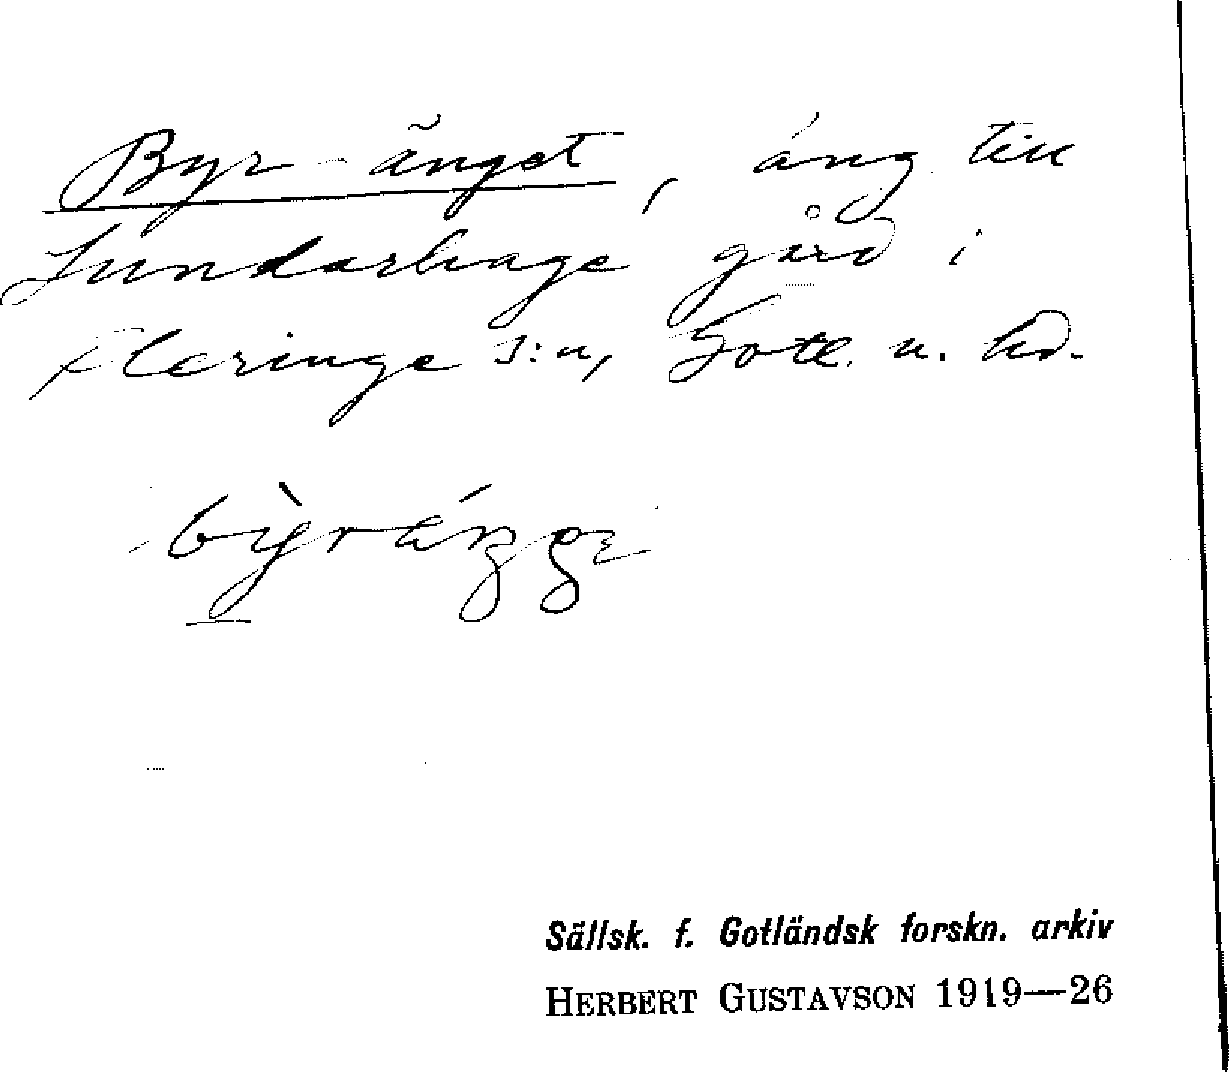 Byr-änget, äng till
Lundarhage gård i
Fleringe s:n, Gotl. n. hd.
Sällsk. f. Gotländsk forskn. arkiv
HERBERT GUSTAVSON 1919—26